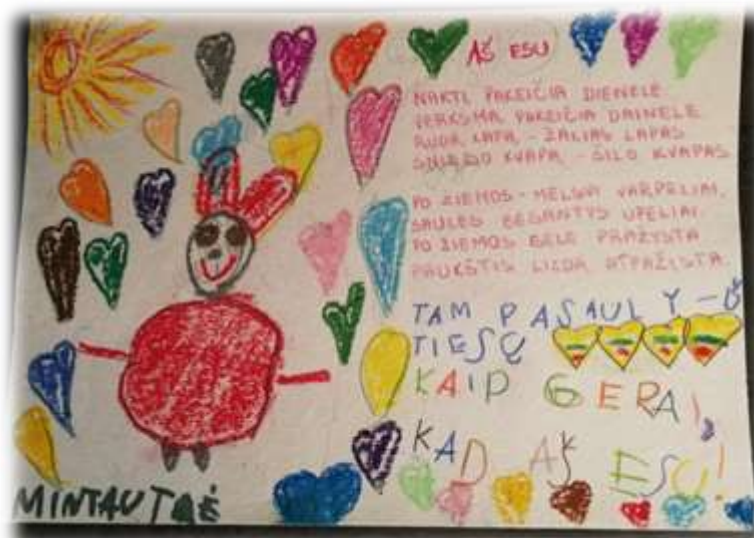 AŠ ESU
NAKTĮ PAKEIČIA DIENELĖ
VERKSMĄ PAKEIČIA DAINELĖ
RUDĄ KAPĄ - ŽALIAS LAPAS
SNIEGO KVAPĄ - ŠILO KVAPAS
PO ŽIEMOS - MELSVI VARPELIAI,
SAULĖS BĖGANTYS UPELIAI.
PO ŽIEMOS GĖLĖ PRAŽYSTA
PAUKŠTIS LIZDĄ ATPAŽĮSTA.
TAM PASAULY - IŠ
TIESŲ
KAIP GERA,
KAD AŠ ESU!
MINTAUTĖ